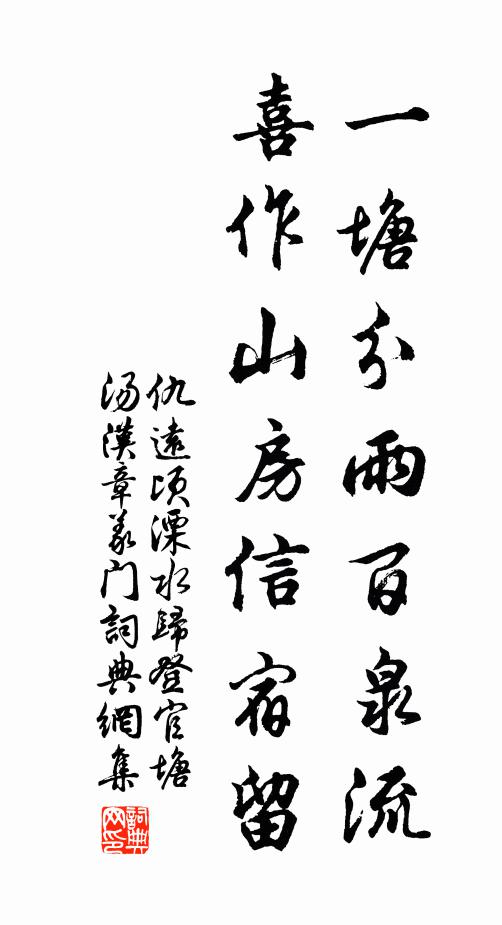 一塘分雨百泉流
喜作山房信宿留
仇遠頃溧水歸登官塘
湯漢章義門詞典網集
詞典网印